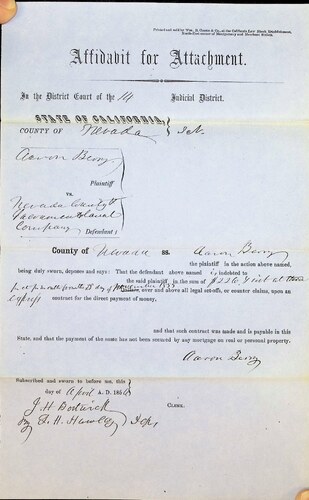 Printed and sold by Wm. B. Cooke & Co., at the California Law Blank Establishment,
Affidavit for Attachment.
In the District Court of the 14 Judicial District.
STATE OF CALIFORNIA,
COUNTY OF Nevada
Aaron Berry
Plaintiff
vs.
Nevada County &
Sacramento Canal
Company Defendant
County of Nevada ss. Aaron Berry
the plaintiff in the action above named,
being duly sworn, deposes and says: That the defendant above named is indebted to
the said plaintiff in the sum of $226, & int at three
pr ct pr month from the 28 day of 1855 over and above all legal set-offs, or counter claims, upon an
express contract for the direct payment of money.
and that such contract was made and is payable in this
State, and that the payment of the same has not been secured by any mortgage on real or personal property.
Aaron Berry
Subscribed and sworn to before me, this
day of April A. D. 1856
J. H. Bostwick CLERK.
By D. H. Hawley Dep